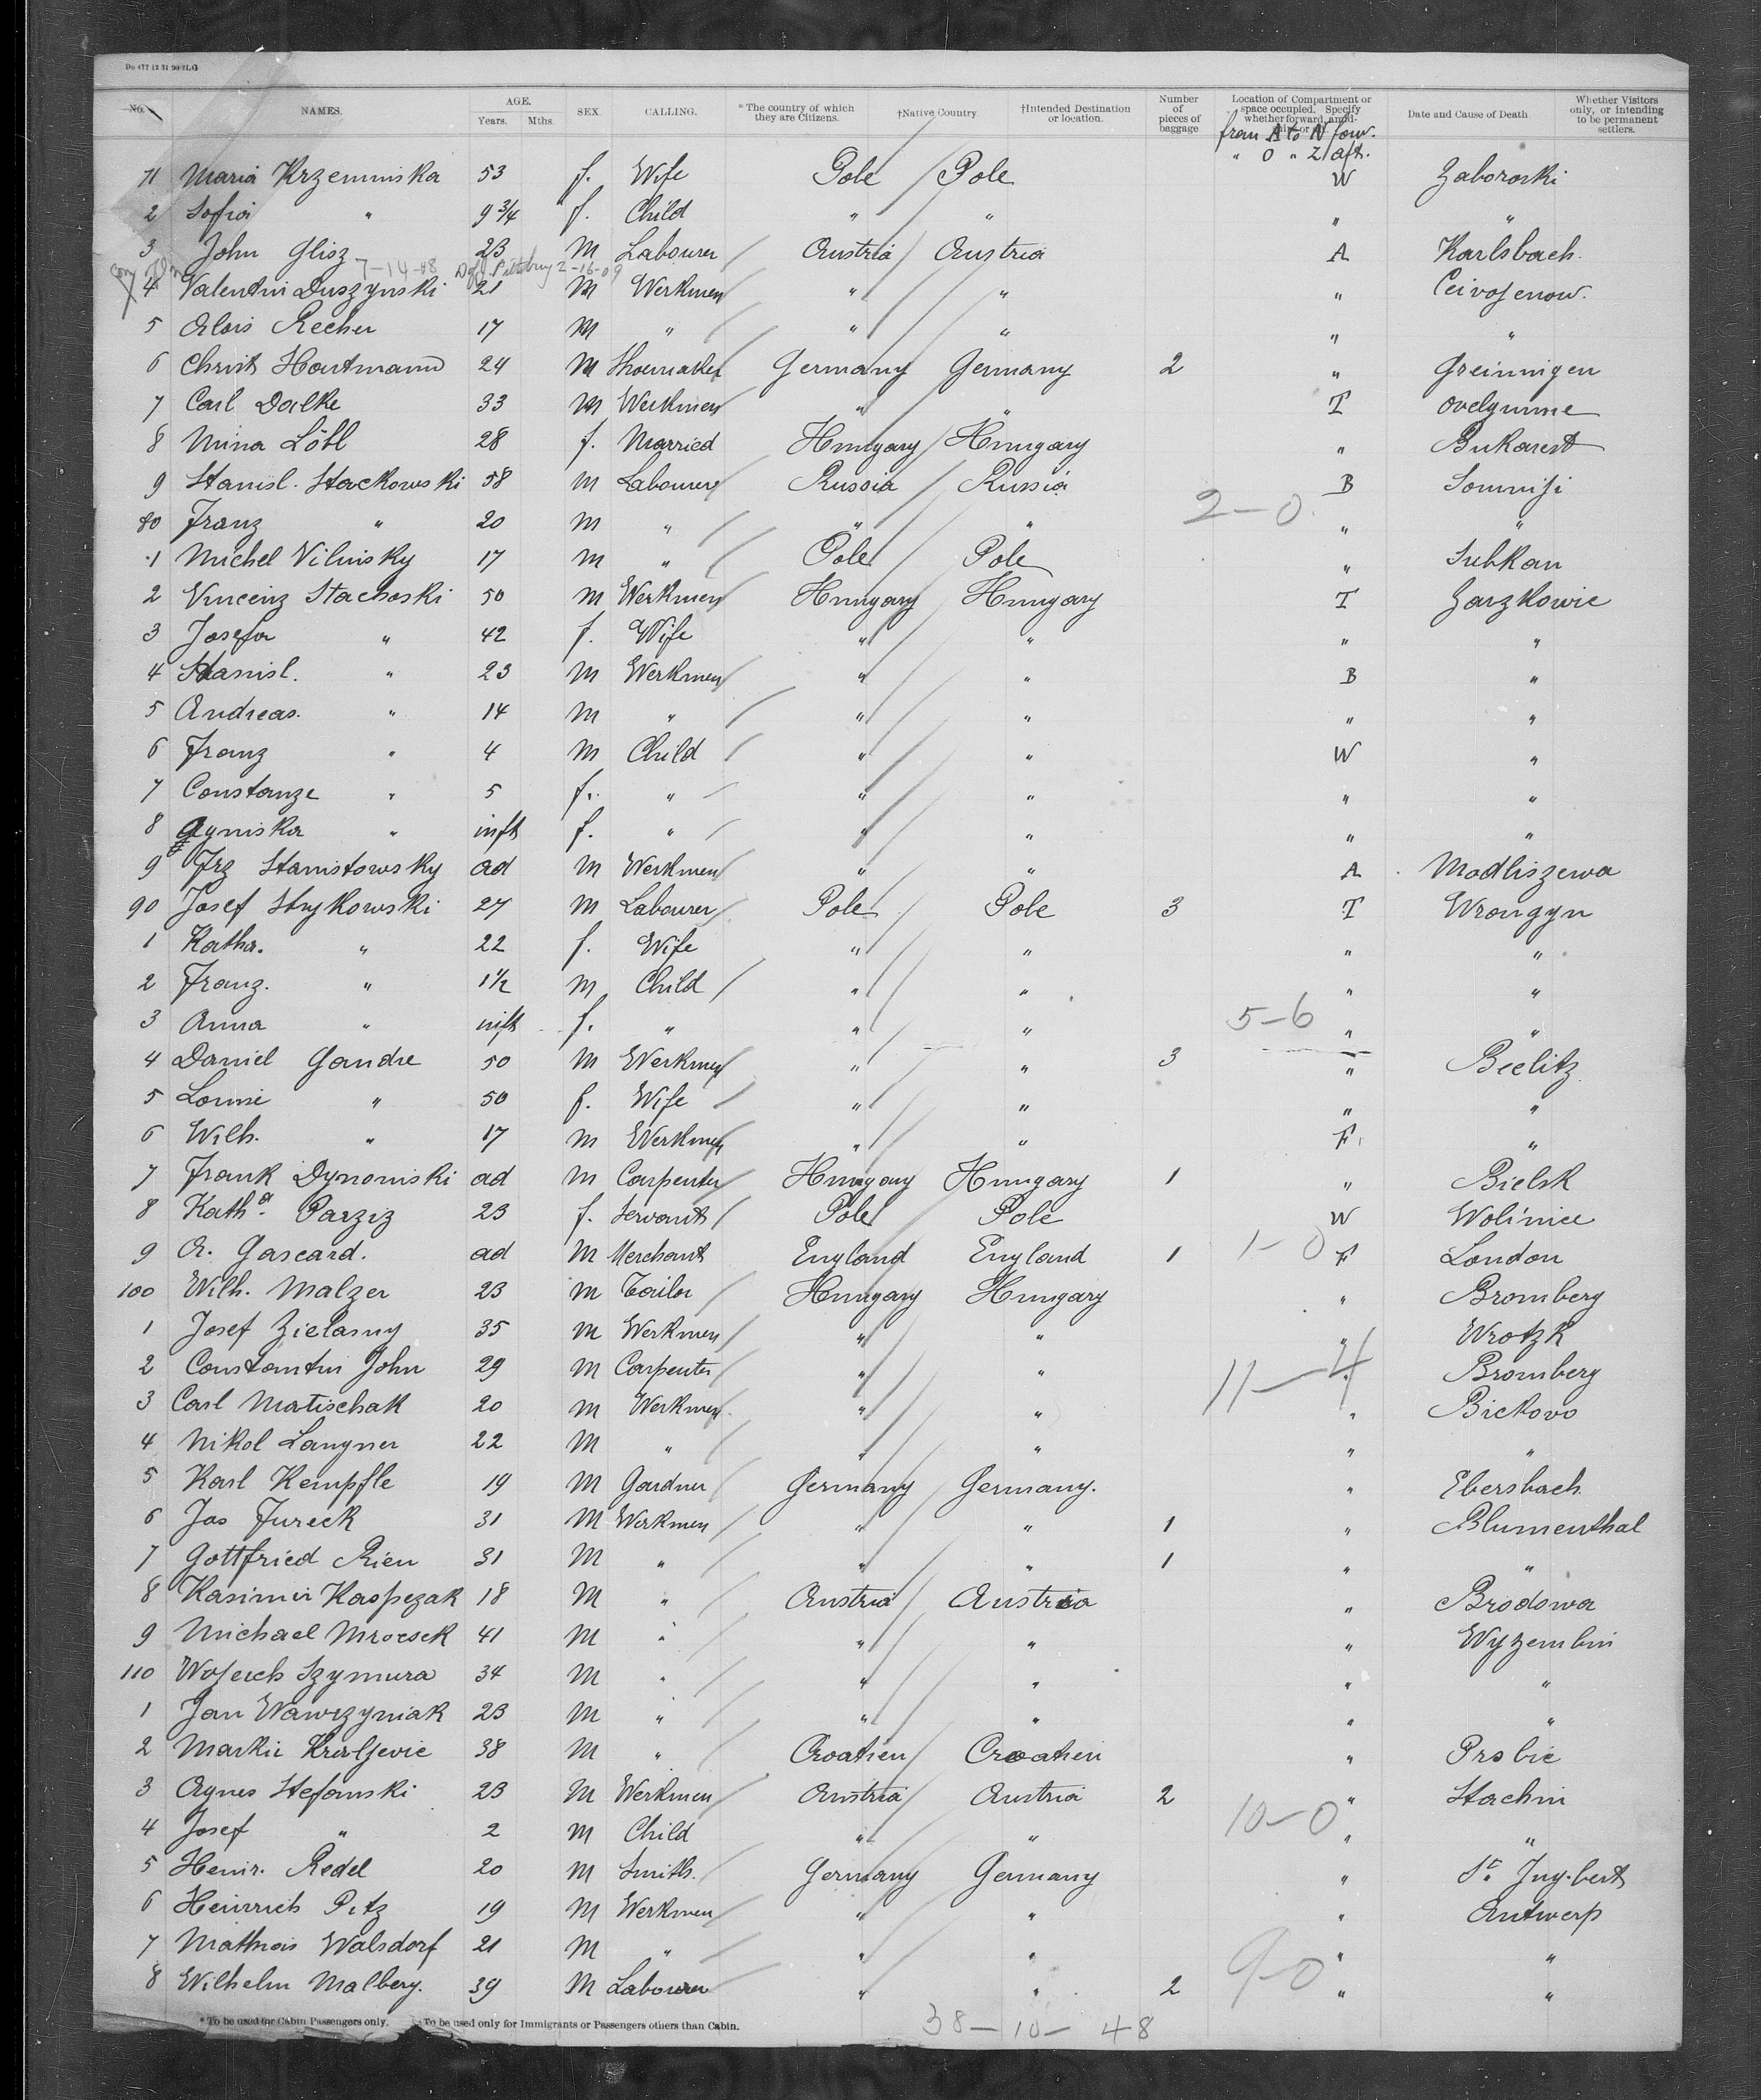 Do 477 12 31 90 21.G
No. NAMES. AGE. Years. Mths. SEX. CALLING. *The country of which they are Citizens. †Native Country †Intended Destination or location. Number of pieces of baggage Location of Compartment or space occupied. Specify whether forward, amid- ship or aft. Date and Cause of Death Whether Visitors only, or intending to be permanent settlers.
from A to N forw.
" O " Z aft.
71 Maria Krzeminska 53 f. Wife Pole Pole W Zaboroski
2 Sofia " 9 3/4 f. Child " " " "
3 John Glisz 23 M Labourer Austria Austria A Karlsbach.
7-14-08 Pittsburg 2-16-09
4 Valentin Duszynski 21 M Werkmen " " "
5 Alois Recher 17 M " " " " "
6 Christ Hartmann 24 M Shoemaker Germany Germany 2 " Greinnigen
7 Carl Dalke 33 M Werkmen " " T Ovelgunne
8 Mina Löbl 28 f. Married Hungary Hungary " Bukarest
9 Stanisl. Stackowski 58 M Labourer Russia Russia B Somnisi
2-0
80 Franz " 20 m " " " " "
1 Michel Vilinsky 17 m " Pole Pole " Subkau
2 Vincenz Stachoski 50 m Werkmen Hungary Hungary T Zarzkowie
3 Josefa " 42 f. Wife " " " "
4 Stanisl. " 23 m Werkmen " " B "
5 Andreas. " 14 m " " " " "
6 Franz " 4 m Child " " W "
7 Constanze " 5 f. " " " " "
8 Agniska " inft f. " " " " "
9 Frz Stanistowsky ad m Werkmen " " A Modliszewa
90 Josef Strykowski 27 M Labourer Pole Pole 3 T Wrongyn
1 Katha. " 22 f. Wife " " " "
2 Franz. " 1 1/2 m Child " " " "
3 Anna " inft f. " " " 5-6 " "
4 Daniel Gandre 50 m Werkmen " " 3 " Beelitz
5 Lonni " 50 f. Wife " " " "
6 Wilh. " 17 m Werkmen " " F. "
7 Frank Dynoniski ad m Carpenter Hungary Hungary 1 " Bielsk
8 Katha. Parziz 23 f. Servant Pole Pole W Wolinice
9 A. Gascard. ad M Merchant England England 1 1-0 F London
100 Wilh. Malzer 23 m Tailor Hungary Hungary " Bromberg
1 Josef Zielasny 35 m Werkmen " " " Wrotzk
2 Constantin John 29 M Carpenter " " 11-4 " Bromberg
3 Carl Matischak 20 m Werkmen " " " Bickovo
4 Nikol Langner 22 M " " " " "
5 Karl Kempfle 19 M Gardner Germany Germany. " Ebersbach
6 Jos Jureck 31 M Werkmen " " 1 " Blumenthal
7 Gottfried Rien 31 M " " " 1 " "
8 Kasimir Kaspezak 18 M " Austria Austria " Brodowa
9 Michael Mrocsek 41 M " " " " Wyzembin
110 Wojeich Szymura 34 M " " " " "
1 Jan Wawrzyniak 23 M " " " " "
2 Markic Kraljevic 38 M " Croatien Croatien " Probic
3 Agnes Stefanski 23 M Werkmen Austria Austria 2 " Stachin
10-0
4 Josef " 2 M Child " " " "
5 Heinr. Redel 20 M Smith. Germany Germany " St. Ingbert
6 Heinrich Pitz 19 M Werkmen " " " Antwerp
7 Mathias Walsdorf 21 M " " " " "
9-0
8 Wilhelm Malberg. 39 M Labourer " " 2 " "
*To be used for Cabin Passengers only. †To be used only for Immigrants or Passengers others than Cabin.
38-10-48